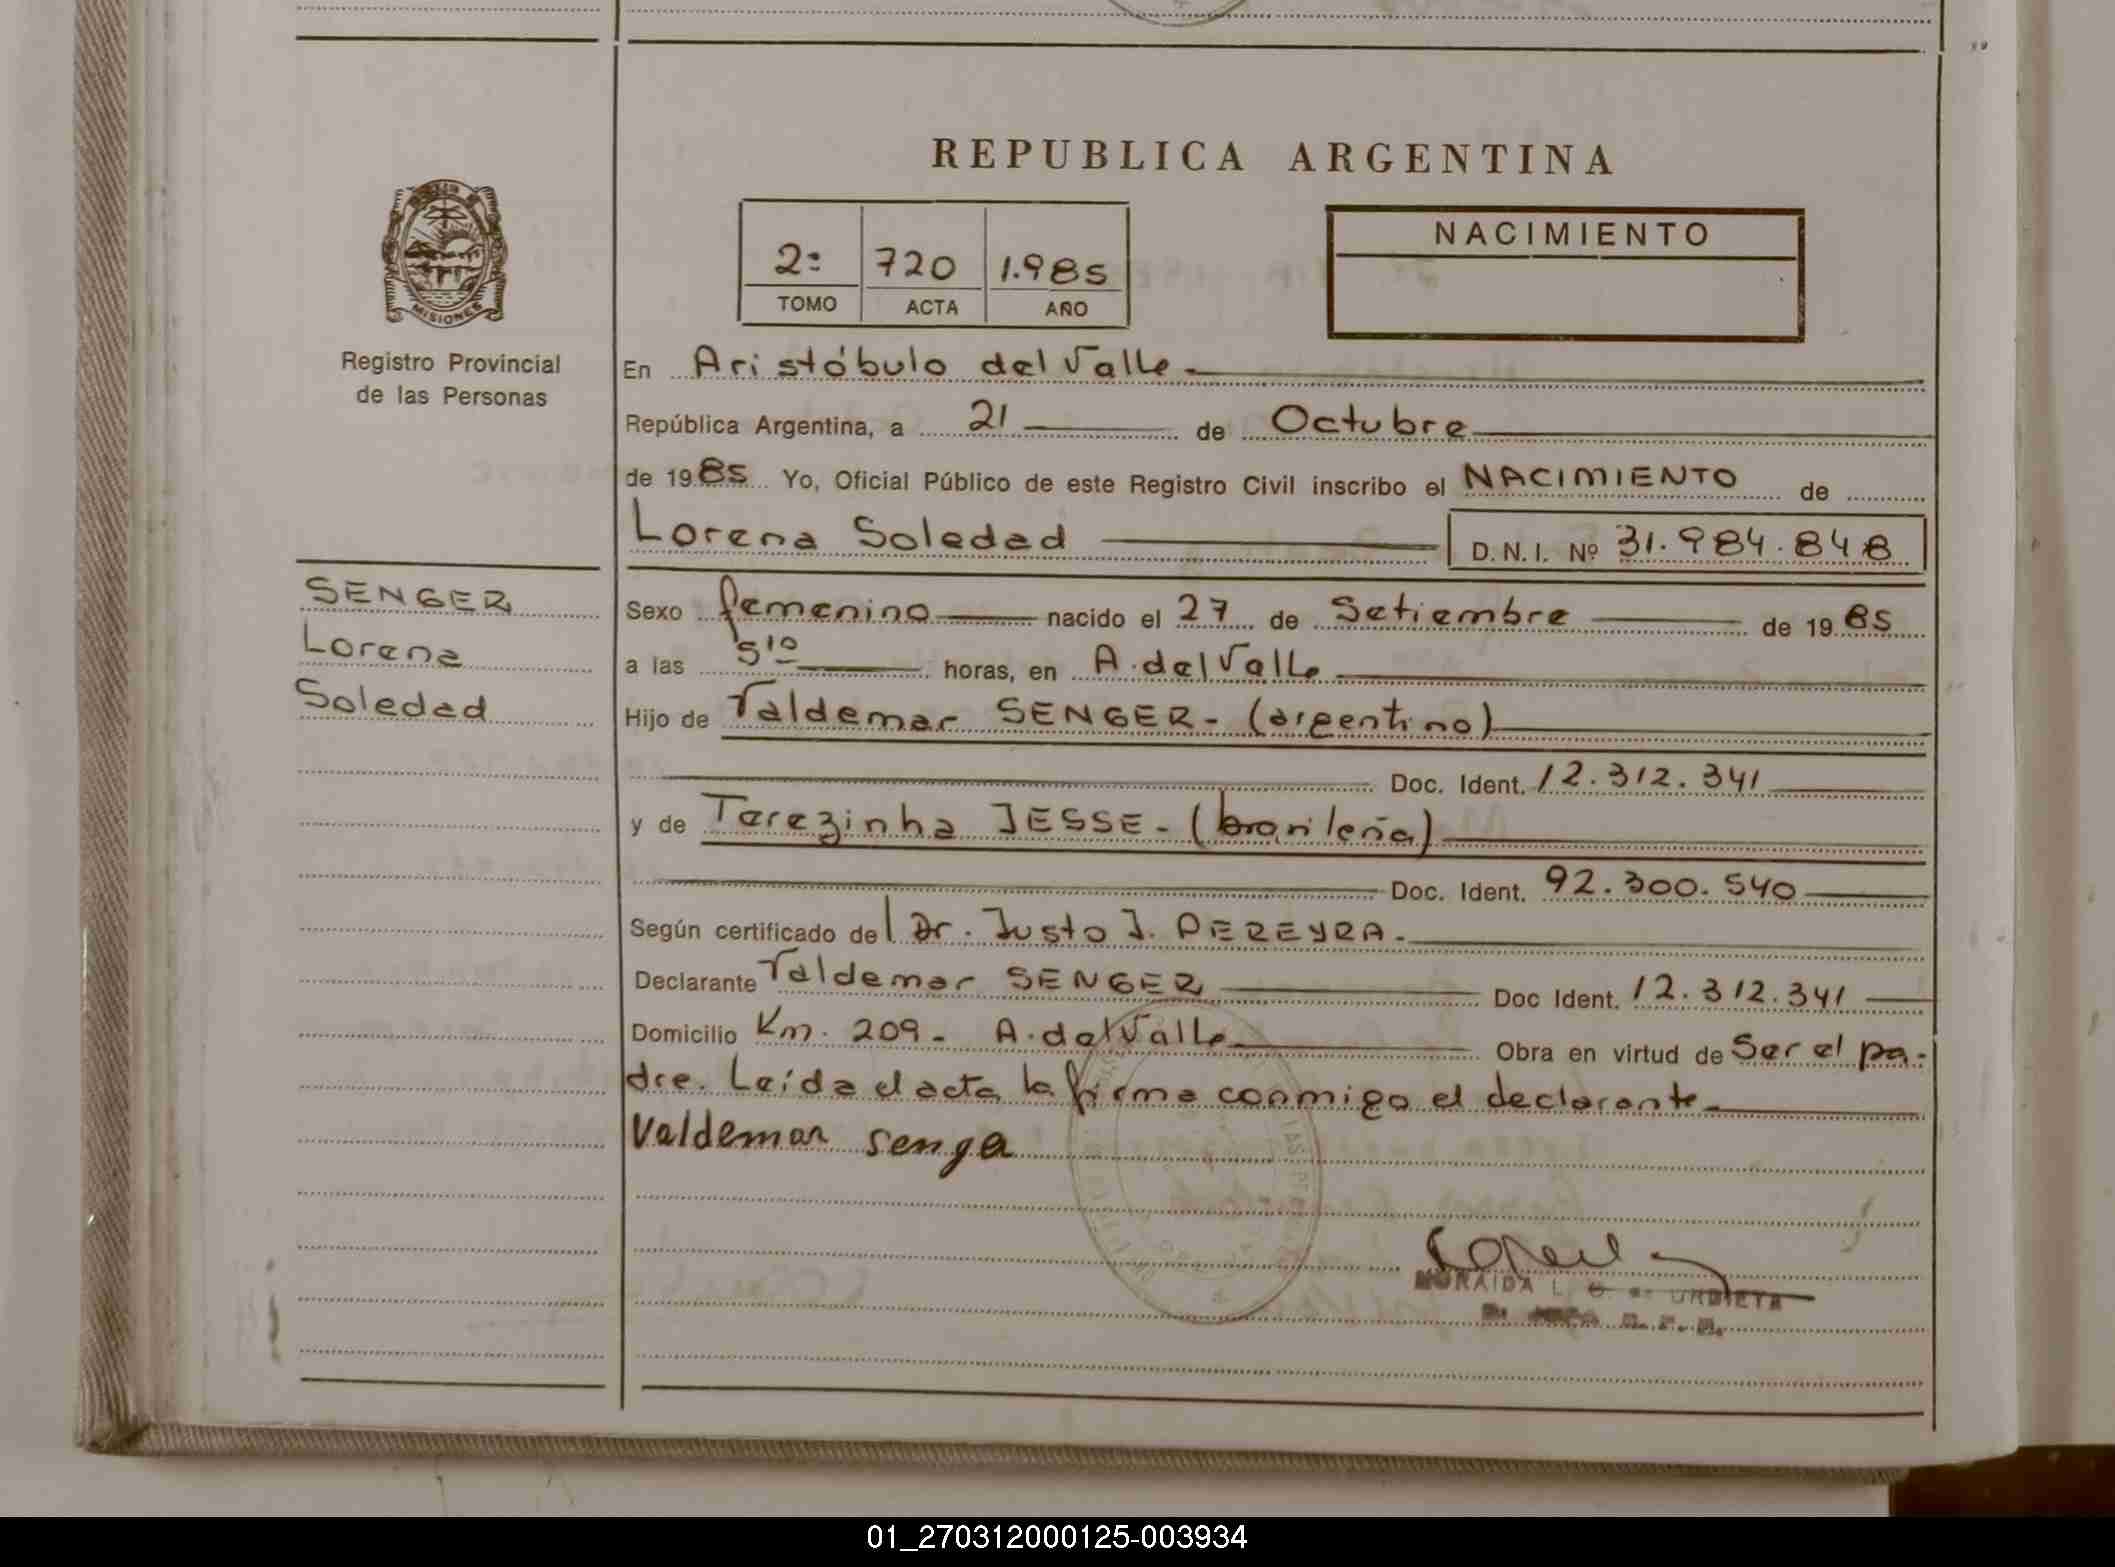 REPUBLICA ARGENTINA
2º 720 1.985
TOMO ACTA AÑO
NACIMIENTO
MISIONES
Registro Provincial
de las Personas
En Aristóbulo del Valle.
República Argentina, a 21 de Octubre
de 1985 Yo, Oficial Público de este Registro Civil inscribo el NACIMIENTO de
Lorena Soledad D.N.I. Nº 31.984.848
SENGER
Lorena
Soledad
Sexo femenino nacido el 27 de Setiembre de 1985
a las 5¹⁰ horas, en A. del Valle
Hijo de Valdemar SENGER - (argentino)
Doc. Ident. 12.312.341
y de Terezinha JESSE - (brasileña)
Doc. Ident. 92.300.540
Según certificado del Dr. Justo J. PEREYRA.
Declarante Valdemar SENGER Doc Ident. 12.312.341
Domicilio Km. 209 - A. del Valle Obra en virtud de Ser el pa-
dre. Leída el acta la firma conmigo el declarante
Valdemar senga
MORAIDA L. G. de URDIETA
01_270312000125-003934